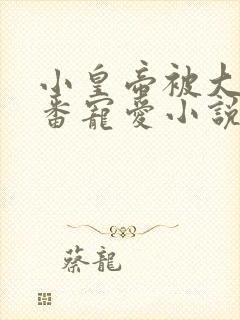 小皇帝被大
番寵愛小說
蔡龍